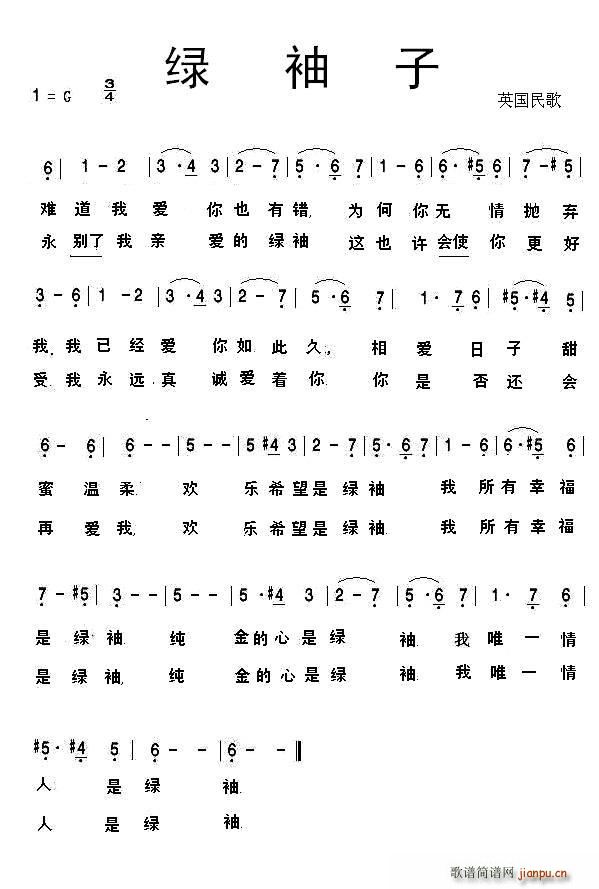 绿 袖 子
1 = G 3/4
英国民歌
6 | 1 - 2 | 3 · 4 3 | 2 - 7 | 5 · 6 7 | 1 - 6 | 6 · #5 6 | 7 - #5 |
难 道 我 爱 你 也 有 错, 为 何 你 无 情 抛 弃
永 别了 我 亲 爱 的 绿 袖 这 也 许 会使 你 更 好
3 - 6 | 1 - 2 | 3 · 4 3 | 2 - 7 | 5 · 6 7 | 1 · 7 6 | #5 · #4 5 |
我, 我 已 经 爱 你 如 此 久, 相 爱 日 子 甜
受. 我 永 远 真 诚 爱 着 你. 你 是 否 还 会
6 - 6 | 6 - - | 5 - - | 5 #4 3 | 2 - 7 | 5 · 6 7 | 1 - 6 | 6 · #5 6 |
蜜 温 柔. 欢 乐 希 望 是 绿 袖 我 所 有 幸 福
再 爱 我, 欢 乐 希 望 是 绿 袖. 我 所 有 幸 福
7 - #5 | 3 - - | 5 - - | 5 · #4 3 | 2 - 7 | 5 · 6 7 | 1 · 7 6 |
是 绿 袖 纯 金 的 心 是 绿 袖. 我 唯 一 情
是 绿 袖, 纯 金 的 心 是 绿 袖. 我 唯 一 情
#5 · #4 5 | 6 - - | 6 - ‖
人 是 绿 袖.
人 是 绿 袖.
歌谱简谱网
jianpu.cn